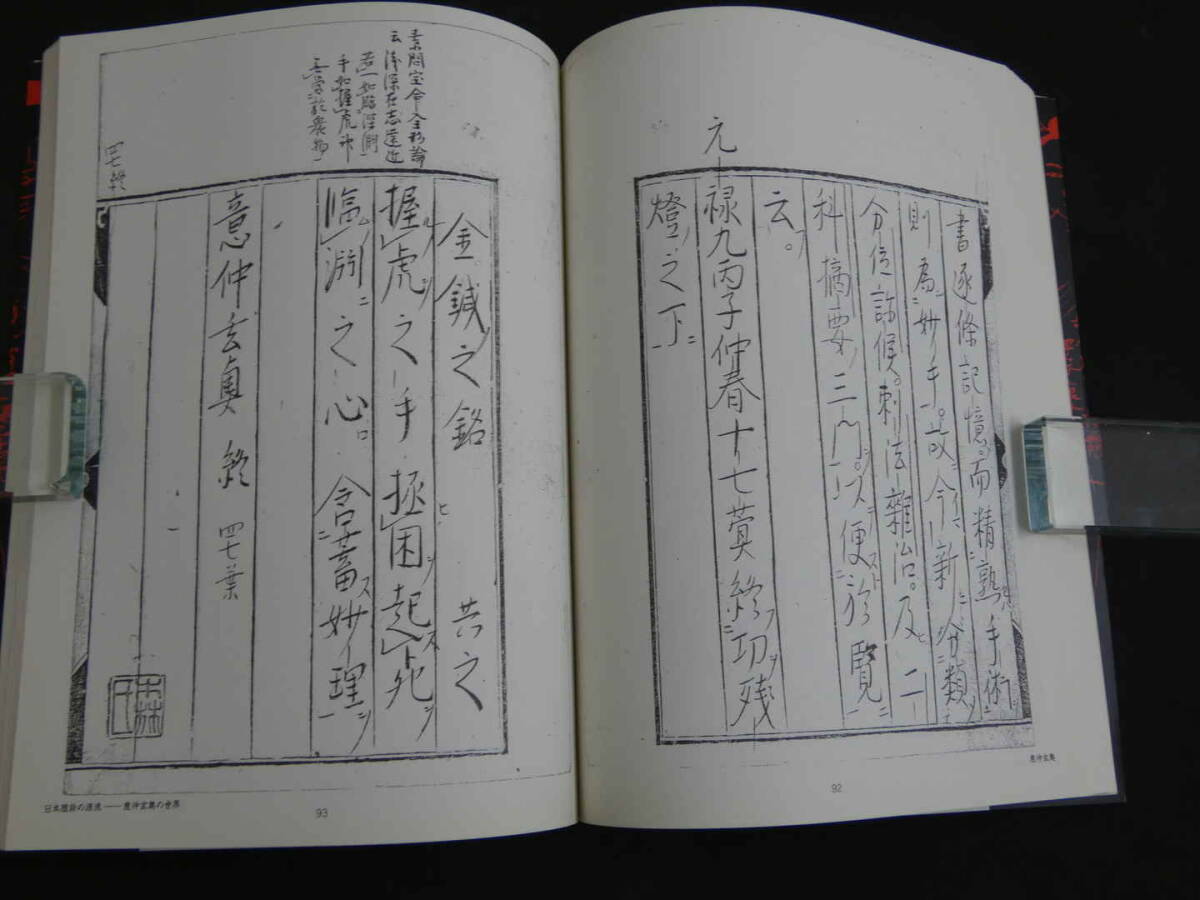 書逐條記憶而精熟手術
則為妙手。故今新分類
分位診候。刺法雜治。及二
科摘要三門。以便於覧
云。
元禄九丙子仲春十七蓂終功残
燈之下
92
金鍼之銘 共之
握虎之手 拯困起死
臨渊之心。含蓄妙理
意仲玄奥 終 四七葉
素問宝命全形論
云浅深在志遠近
若一如臨深渕
手如握虎神
無営於衆物
四七終
93